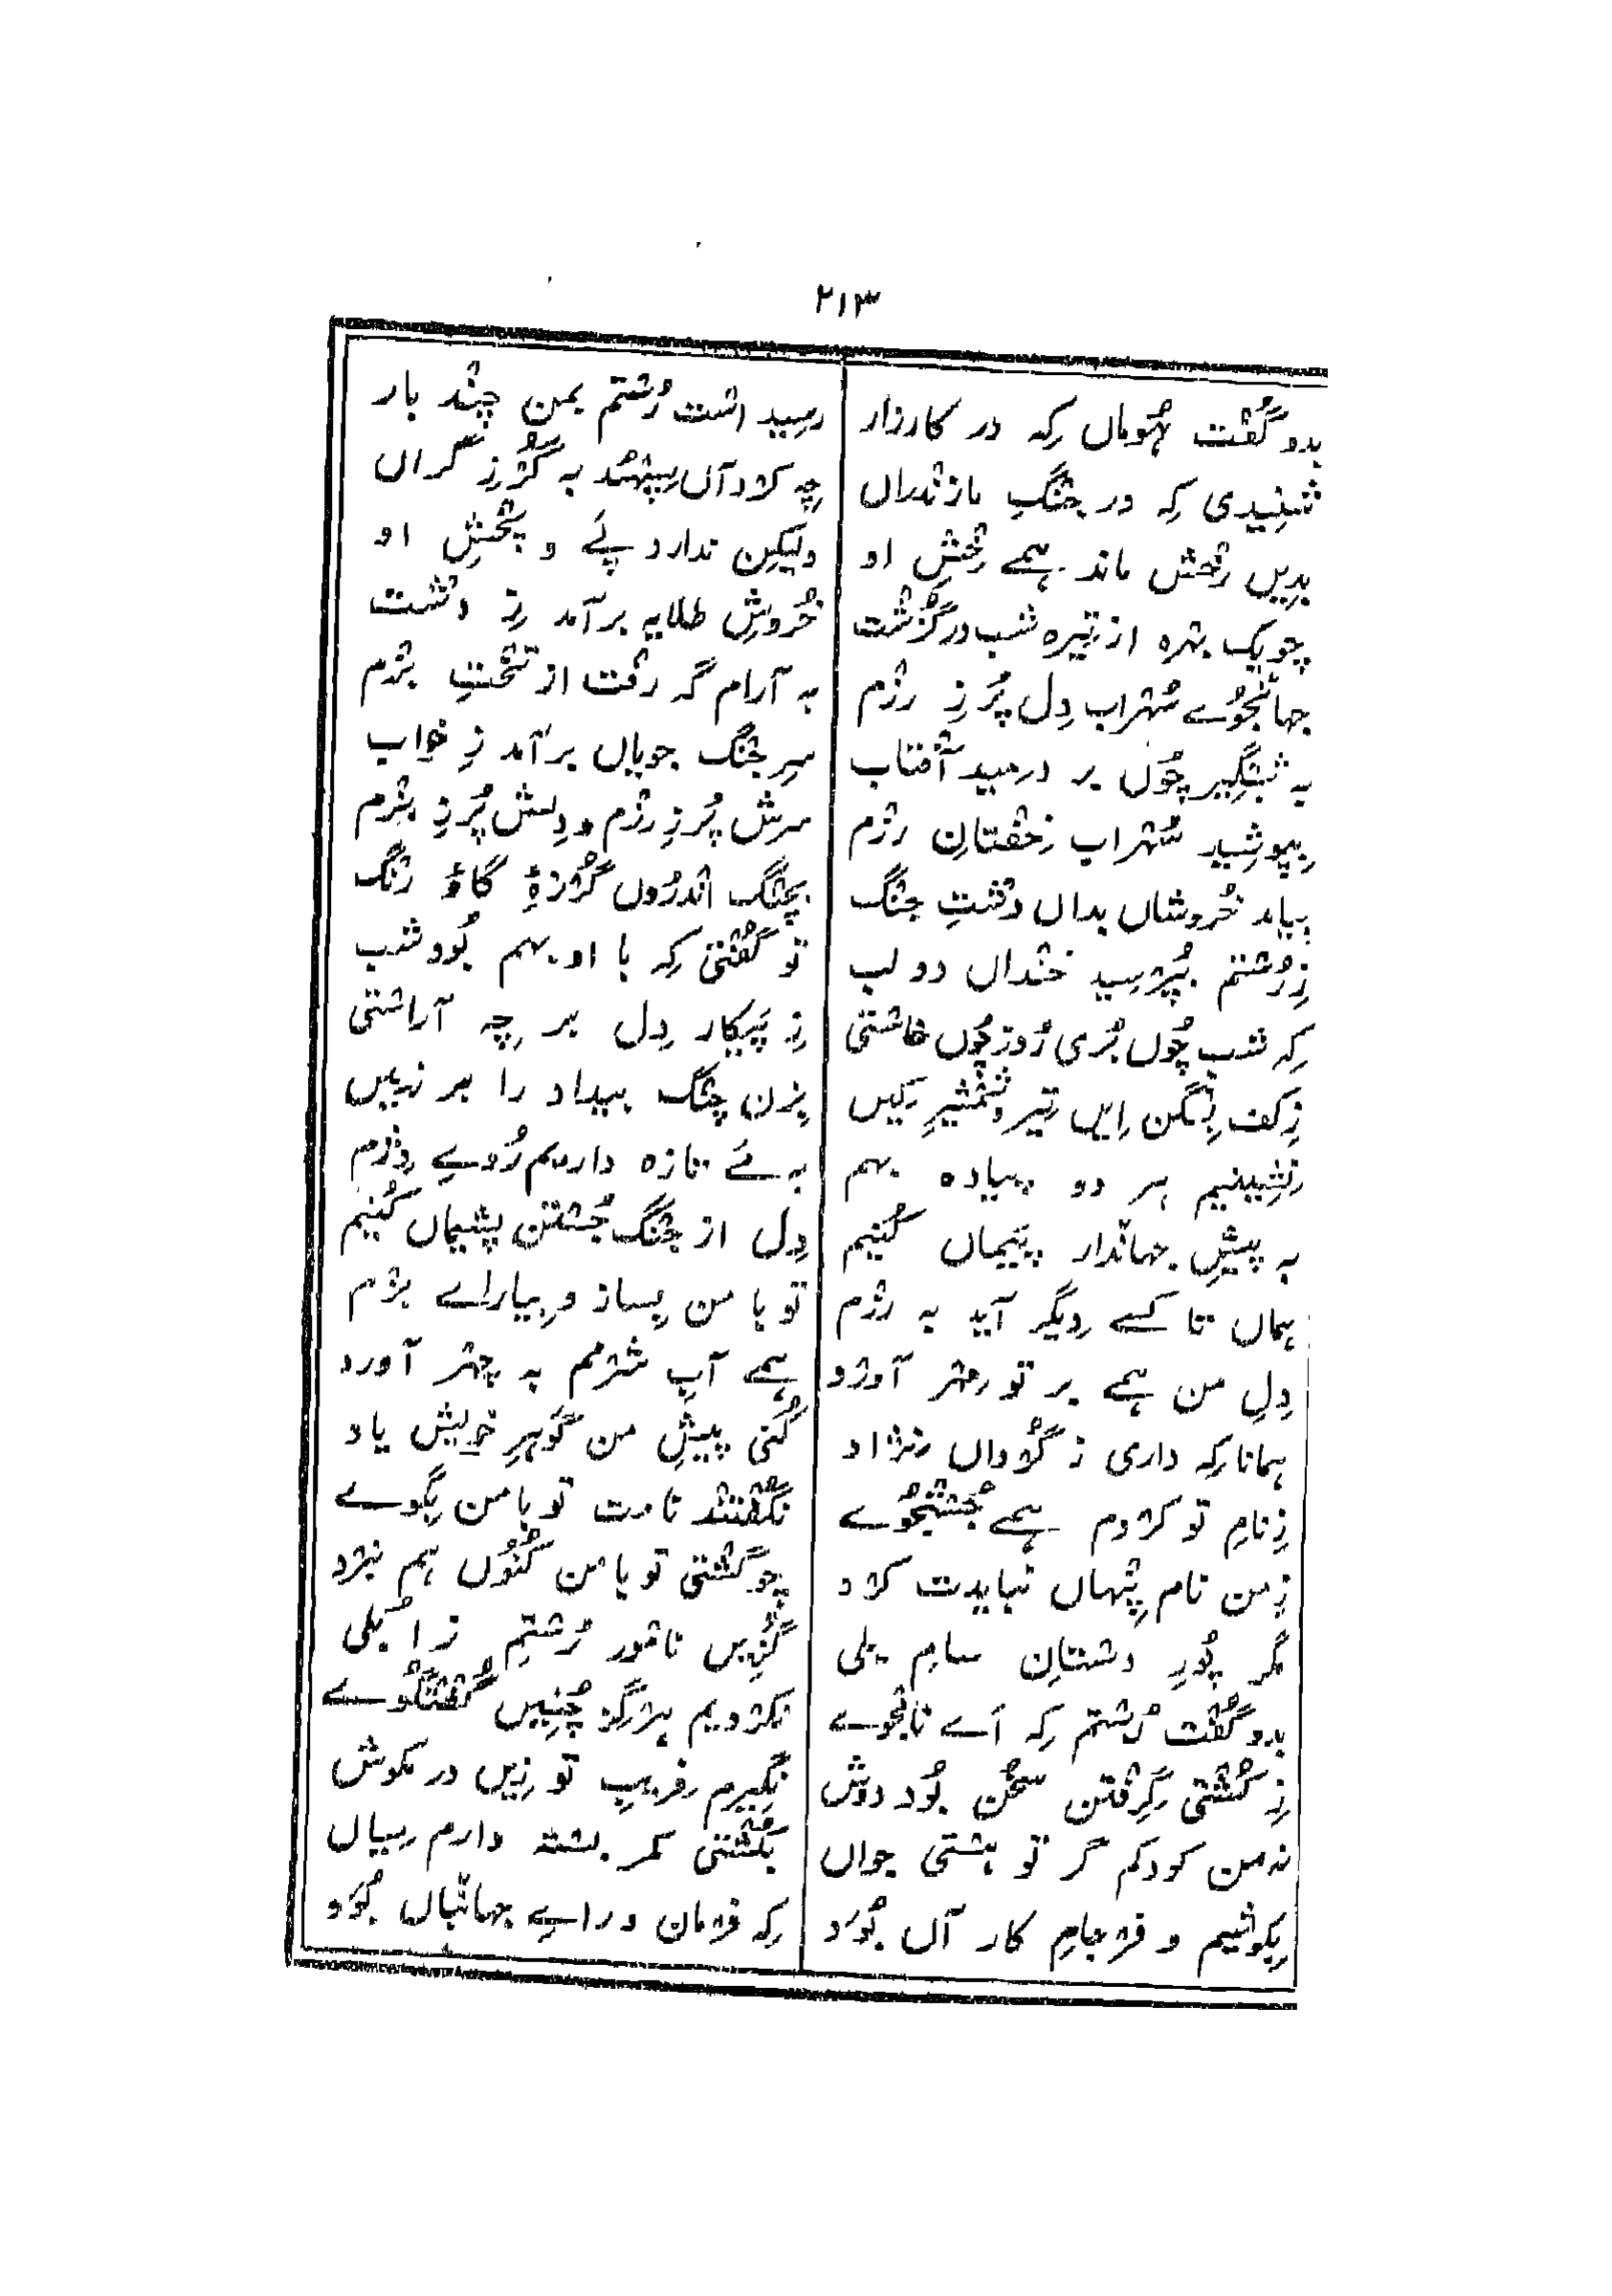 ۲۱۳
بدو گُفْت ہُوماں کِہ در کارزار رسِید اسْت رُسْتم بمن چنْد بار
شنِیدی کِہ در جنْگِ مازنْدراں چِہ کرْد آں سِپہْبُد بہ گُرْزِ گراں
بدِیں رخْش ماند ہمے رخْشِ او ولیکِن ندارد پئے و پخْشِ او
چو یک بہْرہ از تِیرہ شب در گُزشْت خُروشِ طلایہ برآمد زِ دشْت
جہانْجُوے سُہْراب دِل پُر زِ رزْم بہ آرام گہ رفْت از تخْتِ بزْم
بہ شبْگِیر چُوں بر دمِید آفْتاب سرِ جنْگ جویاں برآمد زِ خواب
بِپوشِید سُہْراب خفْتانِ رزْم سرش پُر زِ رزْم و دِلش پُر زِ بزْم
بیامد خُروشاں بداں دشْتِ جنْگ بچنْگ انْدرُوں گُرْزۂ گاؤ رنْگ
زِ رُسْتم بپُرْسِید خنْداں دو لب تو گُفْتی کِہ با او بہم بُود شب
کِہ شب چُوں بُدی رُوز چُوں خاسْتی زِ پَیکار دِل بر چِہ آراسْتی
زِ کف بِفگن اِیں تِیر و شمْشیرِ کِیں بزن چنْگ بیداد را بر زمِیں
نشِینیم ہر دو پیادہ بہم بہ مَے تازہ دارِیم رُوے دُژم
بہ پیشِ جہانْدار پَیماں کُنیم دِل از جنْگ جُسْتن پشیماں کُنیم
ہماں تا کسے دِیگر آید بہ رزْم تو با من بِساز و بیاراے بزْم
دِلِ من ہمے بر تو مِہْر آورْد ہمے آبِ شرْمم بہ چِہْر آورد
ہمانا کِہ داری زِ گُرْداں نژاد کُنی پیشِ من گَوہرِ خویش یاد
زِ نامِ تو کرْدم ہمے جُسْتجُوے نگُفْتنْد نامت تو با من بِگوے
زِ من نام پِنْہاں نبایدت کرْد چو گشْتی تو با من کُنُوں ہم نبرْد
مگر پُورِ دسْتانِ سامِ یلی گُزِیں نامْور رُسْتمِ زابُلی
بدو گُفْت رُسْتم کِہ اَے نامْجُوے نکرْدیم ہرْگز چُنِیں گُفْتگُوے
زِ کُشْتی گِرِفْتن سُخُن بُود دوش نگِیرم فریبِ تو زِیں در مکوش
نہ من کودکم گر تو ہسْتی جواں بکُشْتی کمر بسْتہ دارم مِیاں
بِکوشیم و فرْجامِ کار آں بُوَد کِہ فرْمان و راےِ جہانْباں بُوَد